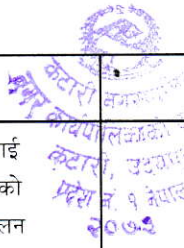 कटारी नगरपालिका
नगर कार्यपालिकाको
कटारी, उदयपुर
प्रदेश नं. १ नेपाल
२०७३
ाई
को
लन